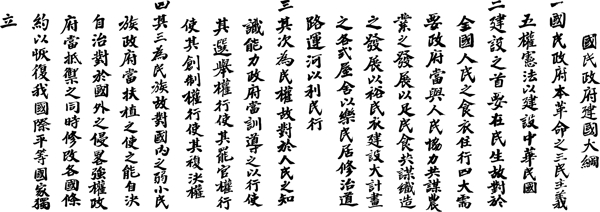 國民政府建國大綱
一國民政府本革命之三民主義
五權憲法以建設中華民國
二建設之首要在民生故對於
全國人民之食衣住行四大需
要政府當與人民協力共謀農
業之發展以足民食共謀織造
之發展以裕民衣建設大計畫
之各式屋舍以樂民居修治道
路運河以利民行
三其次為民權故對於人民之知
識能力政府當訓導之以行使
其選舉權行使其罷官權行
使其創制權行使其複決權
四其三為民族故對國內之弱小民
族政府當扶植之使之能自決
自治對於國外之侵畧強權政
府當抵禦之同時修改各國條
約以恢復我國際平等國家獨
立